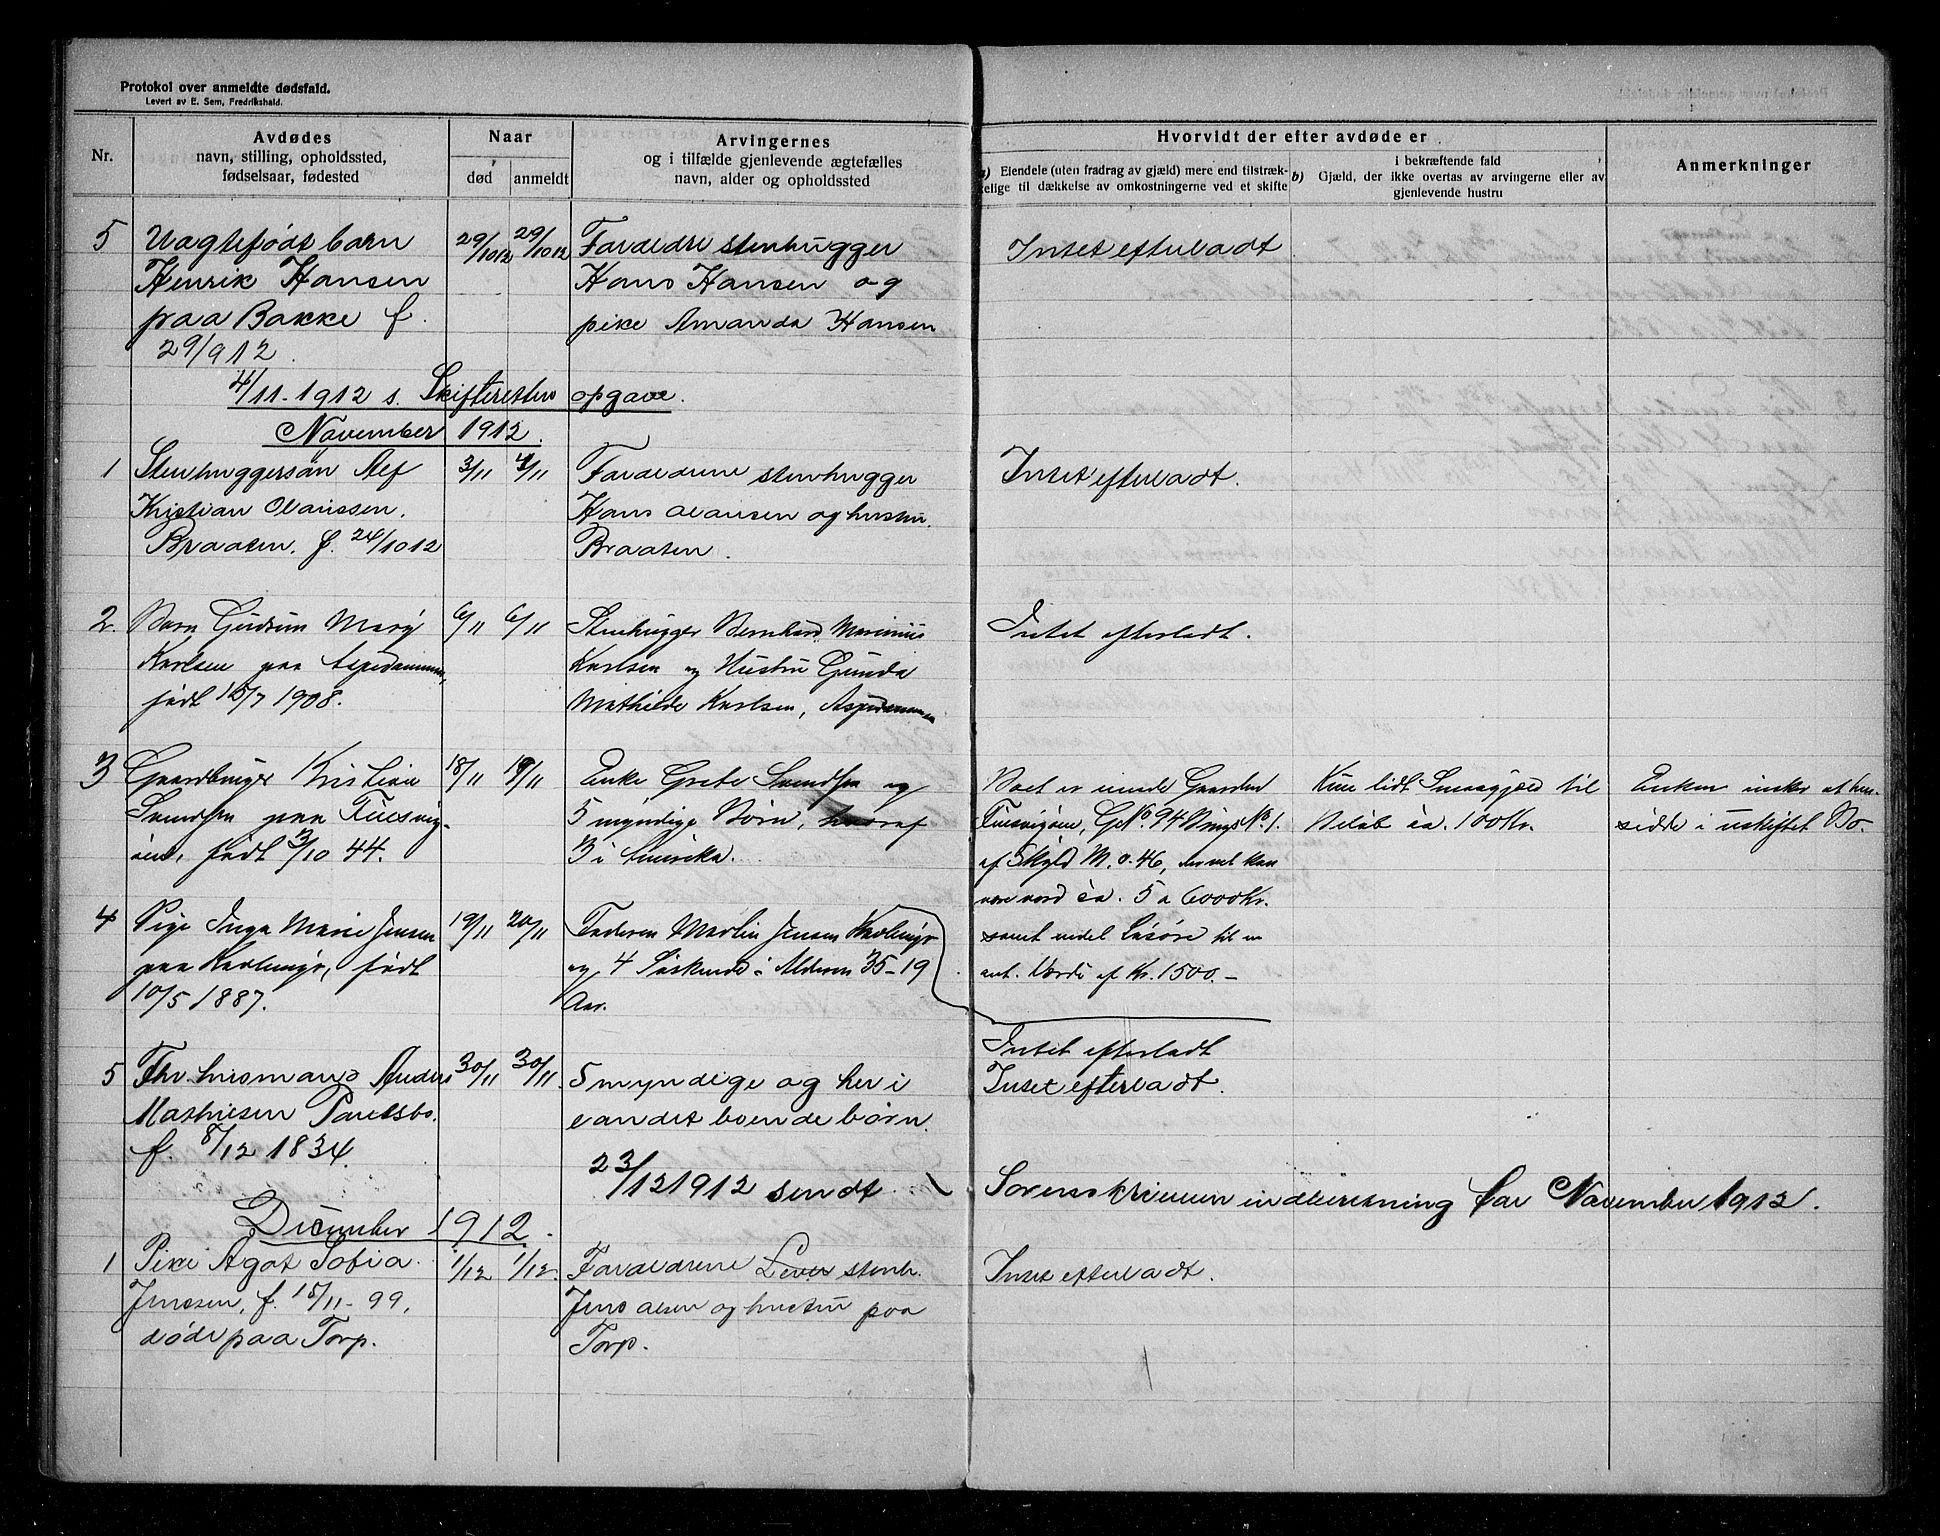 Protokol over anmeldte dødsfald.
Levert av E. Sem, Fredrikshald.
Nr.
Avdødes
navn, stilling, opholdssted,
fødselsaar, fødested
Naar
død
anmeldt
Arvingernes
og i tilfælde gjenlevende ægtefælles
navn, alder og opholdssted
Hvorvidt der efter avdøde er
a) Eiendele (uten fradrag av gjæld) mere end tilstræk-
kelige til dækkelse av omkostningerne ved et skifte
i bekræftende fald
b) Gjæld, der ikke overtas av arvingerne eller av
gjenlevende hustru
Anmerkninger
5 Uægtefødt barn
Henrik Hansen
paa Bakke f.
29/9 12
29/10 12 29/10 12
Forældre stenhugger
Hans Hansen og
pike Amanda Hansen
Intet efterladt
4/11-1912 s. Skifterettens opgave.
November 1912.
1 Stenhuggersøn Alf
Kristian Olaussen.
Braaten. f. 24/10 12
3/11 4/11
Forældrene stenhugger
Hans Olausen og hustru.
Braaten.
Intet efterladt.
2. Barn Gudrun Mary
Karlsen paa Aspedammen,
født 15/7 1908.
6/11 6/11
Stenhugger Bernhard Marinius
Karlsen og Hustru Gunda
Mathilde Karlsen, Aspedammen
Intet efterladt.
3 Gaardbruger Kristian
Svendsen paa
født 3/10 44.
18/11 19/11
Enke Grete Svendsen og
5 myndige Børn, hvoraf
3 i Amerika.
Boet er eiende Gaarden
G No. 94 Brugs No. 1.
af Skyld M. 0.46, der vel kan
være værd ca. 5 a 6000 Kr.
samt endel Løsøre til en
ant. Værdi af Kr. 1500.-
Kun lidt Smaagjæld til
Beløb ca. 100 Kr.
Enken ønsker at hen-
sidde i uskiftet Bo.
4 Pige Inga Marie Jensen
paa
født
10/5 1887.
19/11 20/11
Faderen Martin Jensen
og 4 Søskende i Alderen 35-19
Aar.
Intet efterladt
5 Fhv. husmand Anders
Mathisen Paulsbo.
f. 8/12 1834.
30/11 30/11.
5 myndige og her i
landet boende børn.
Intet efterladt.
23/12 1912 sendt Sorenskriveren indberetning for November 1912.
December 1912.
1 Pike Agot Sofia
Jenssen, f. 15/11-99,
døde paa Torp.
1/12 1/12.
Forældrene stenh.
Jens Olsen og hustru paa
Torp.
Intet efterladt.